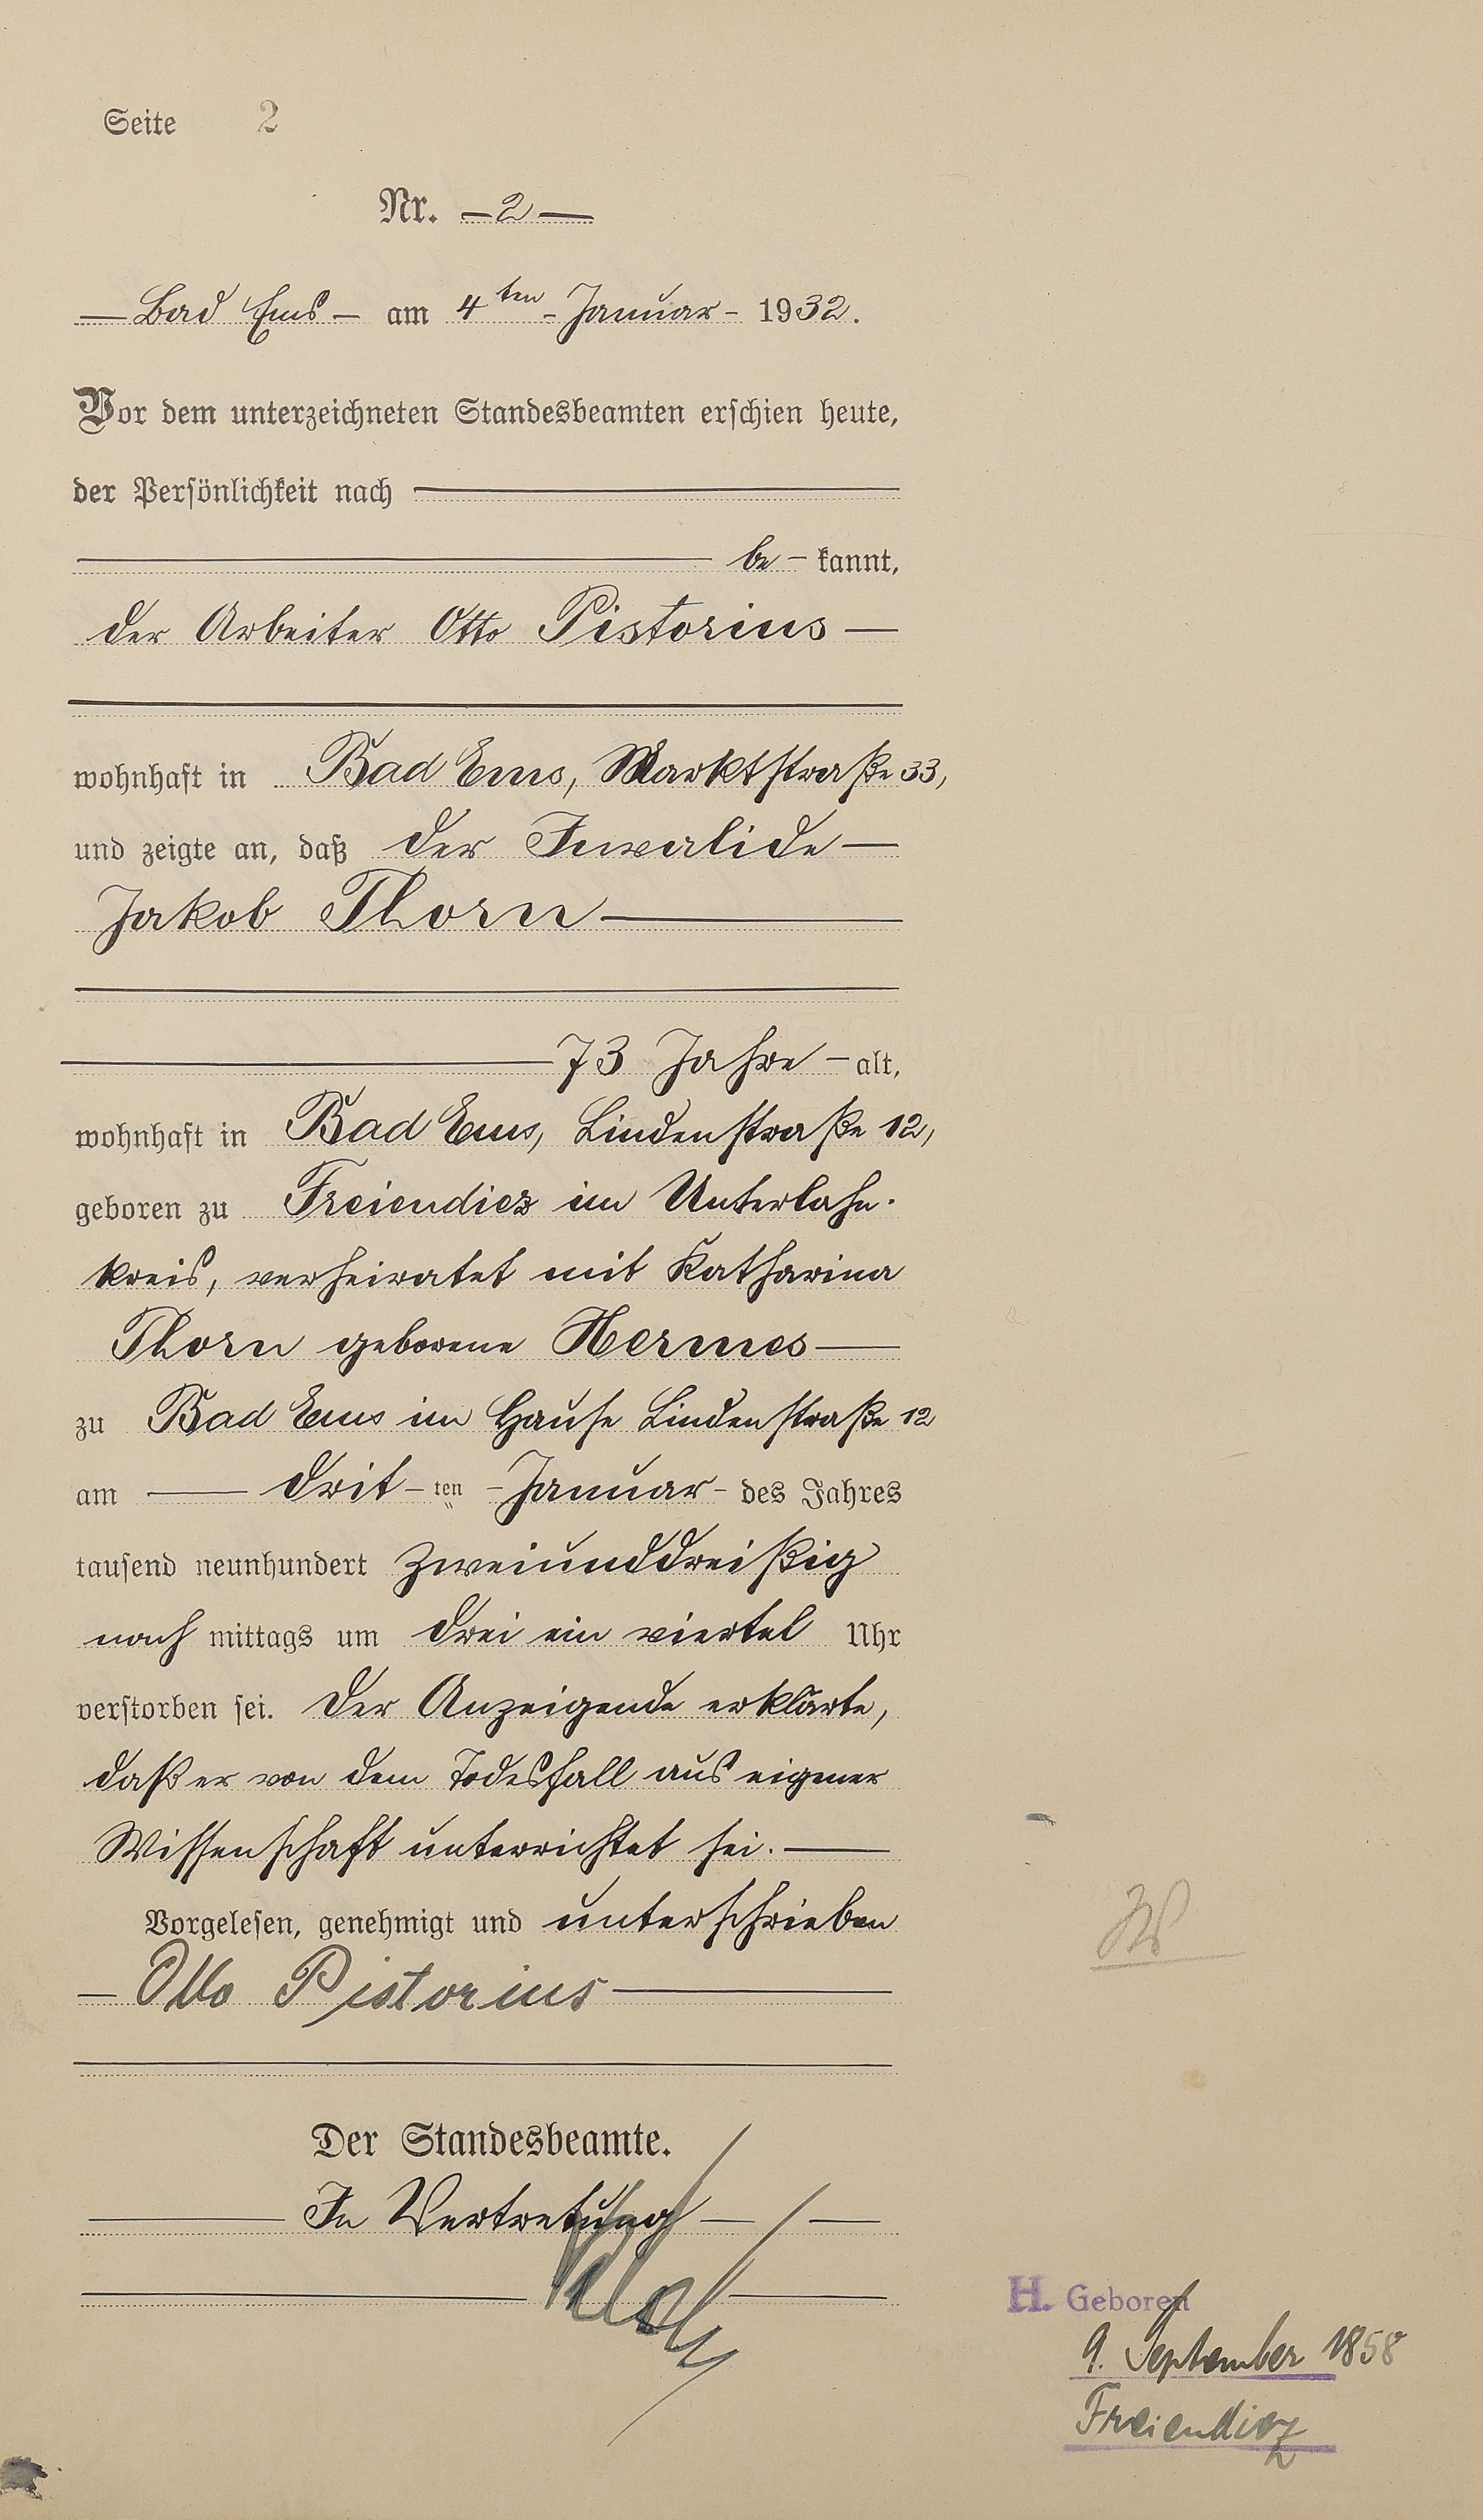 Seite 2
Nr. — 2 —
— Bad Ems — am 4ten - Januar - 1932.
Vor dem unterzeichneten Standesbeamten erschien heute,
der Persönlichkeit nach
be - kannt,
der Arbeiter Otto Pistorius —
wohnhaft in Bad Ems, Marktstraße 33,
und zeigte an, daß der Invalide —
Jakob Thorn —
73 Jahre - alt,
wohnhaft in Bad Ems, Lindenstraße 12,
geboren zu Freiendiez im Unterlahn-
kreis, verheiratet mit Katharina
Thorn geborene Hermes —
zu Bad Ems im Hause Lindenstraße 12
am — drit - ten - Januar - des Jahres
tausend neunhundert zweiunddreißig
nach mittags um drei ein viertel Uhr
verstorben sei. Der Anzeigende erklärte,
daß er von dem Todesfall aus eigener
Wissenschaft unterrichtet sei. —
Vorgelesen, genehmigt und unterschrieben
— Otto Pistorius —
Der Standesbeamte.
In Vertretung —
H. Geboren
9. September 1858
Freiendiez